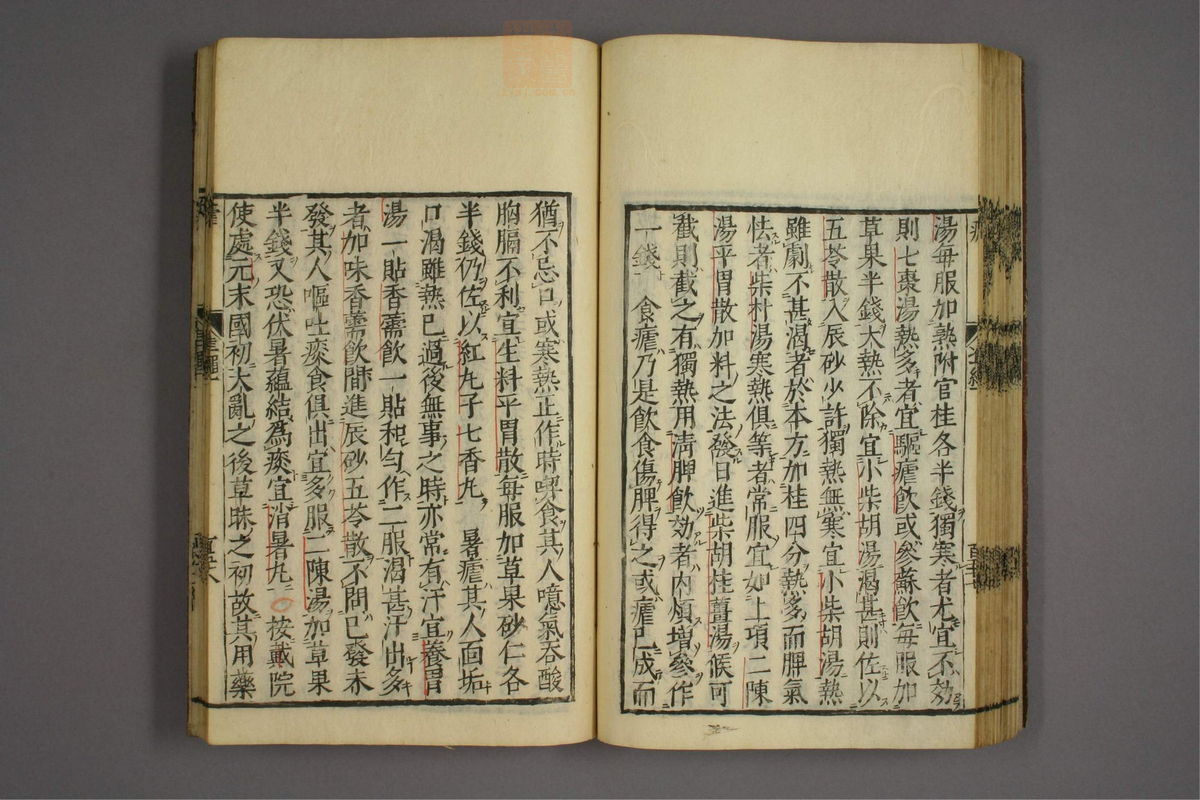 湯每服加熟附官桂各半錢獨寒者尤宜不効
則七棗湯熱多者宜驅瘧飲或參蘇飲每服加
草果半錢大熱不除宜小柴胡湯渴甚則佐以
五苓散入辰砂少許獨熱無寒宜小柴胡湯熱
雖劇不甚渴者於本方加桂四分熱多而脾氣
怯者柴朴湯寒熱俱等者常服宜如上項二陳
湯平胃散加料之法發日進柴胡桂薑湯候可
截則截之有獨熱用清脾飲効者內煩增參作
一錢　食瘧乃是飲食傷脾得之或瘧已成而
猶不忌口或寒熱正作時喫食其人噫氣吞酸
胸膈不利宜生料平胃散每服加草果砂仁各
半錢仍佐以紅丸子七香丸　暑瘧其人面垢
口渴雖熱已過後無事之時亦常有汗宜養胃
湯一貼香薷飲一貼和勻作二服渴甚汗出多
者加味香薷飲間進辰砂五苓散不問已發未
發其人嘔吐痰食俱出宜多服二陳湯加草果
半錢又恐伏暑蘊結爲痰宜消暑丸○按戴院
使處元末國初大亂之後草昧之初故其用藥